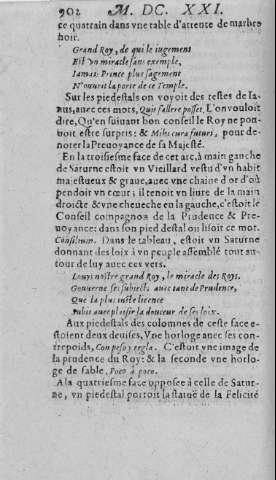 902 M. DC. XXI.
ce quatrain dans vne table d'attente de marbre
noir.
Grand Roy, de qui le iugement
Est vn miracle sans exemple,
Iamais Prince plus sagement
N'ouurit la porte de ce Temple.
Sur les piedestals on voyoit des testes de Ia-
nus, auec ces mots, Qui fallere posset, L'on vouloit
dire, Qu'en suiuant bon conseil le Roy ne pou-
uoit estre surpris: & Mihi cura futuri, pour de-
noter la Preuoyance de sa Majesté.
En la troisiesme face de cet arc, à main gauche
de Saturne estoit vn Vieillard vestu d'vn habit
majestueux & graue, auec vne chaine d'or d'où
pendoit vn cœur; il tenoit vn liure de la main
droicte & vne cheueche en la gauche, c'estoit le
Conseil compagnon de la Prudence & Pre-
uoyance: dans son pied destal on lisoit ce mot.
Consilium. Dans le tableau, estoit vn Saturne
donnant des loix à vn peuple assemblé tout au-
tour de luy auec ces vers.
Louys nostre grand Roy, le miracle des Roys,
Gouuerne ses subiects auec tant de Prudence,
Que la plus iniste licence
Subit auec plaisir la douceur de ses loix.
Aux piedestals des colomnes de ceste face e-
stoient deux deuises, Vne horloge auec ses con-
trepoids, Con peso y regla. C'estoit vne image de
la prudence du Roy: & la seconde vne horlo-
ge de sable, Poco à poco.
A la quatriesme face opposée à celle de Satur-
ne, vn piedestal portoit la statuë de la Felicité